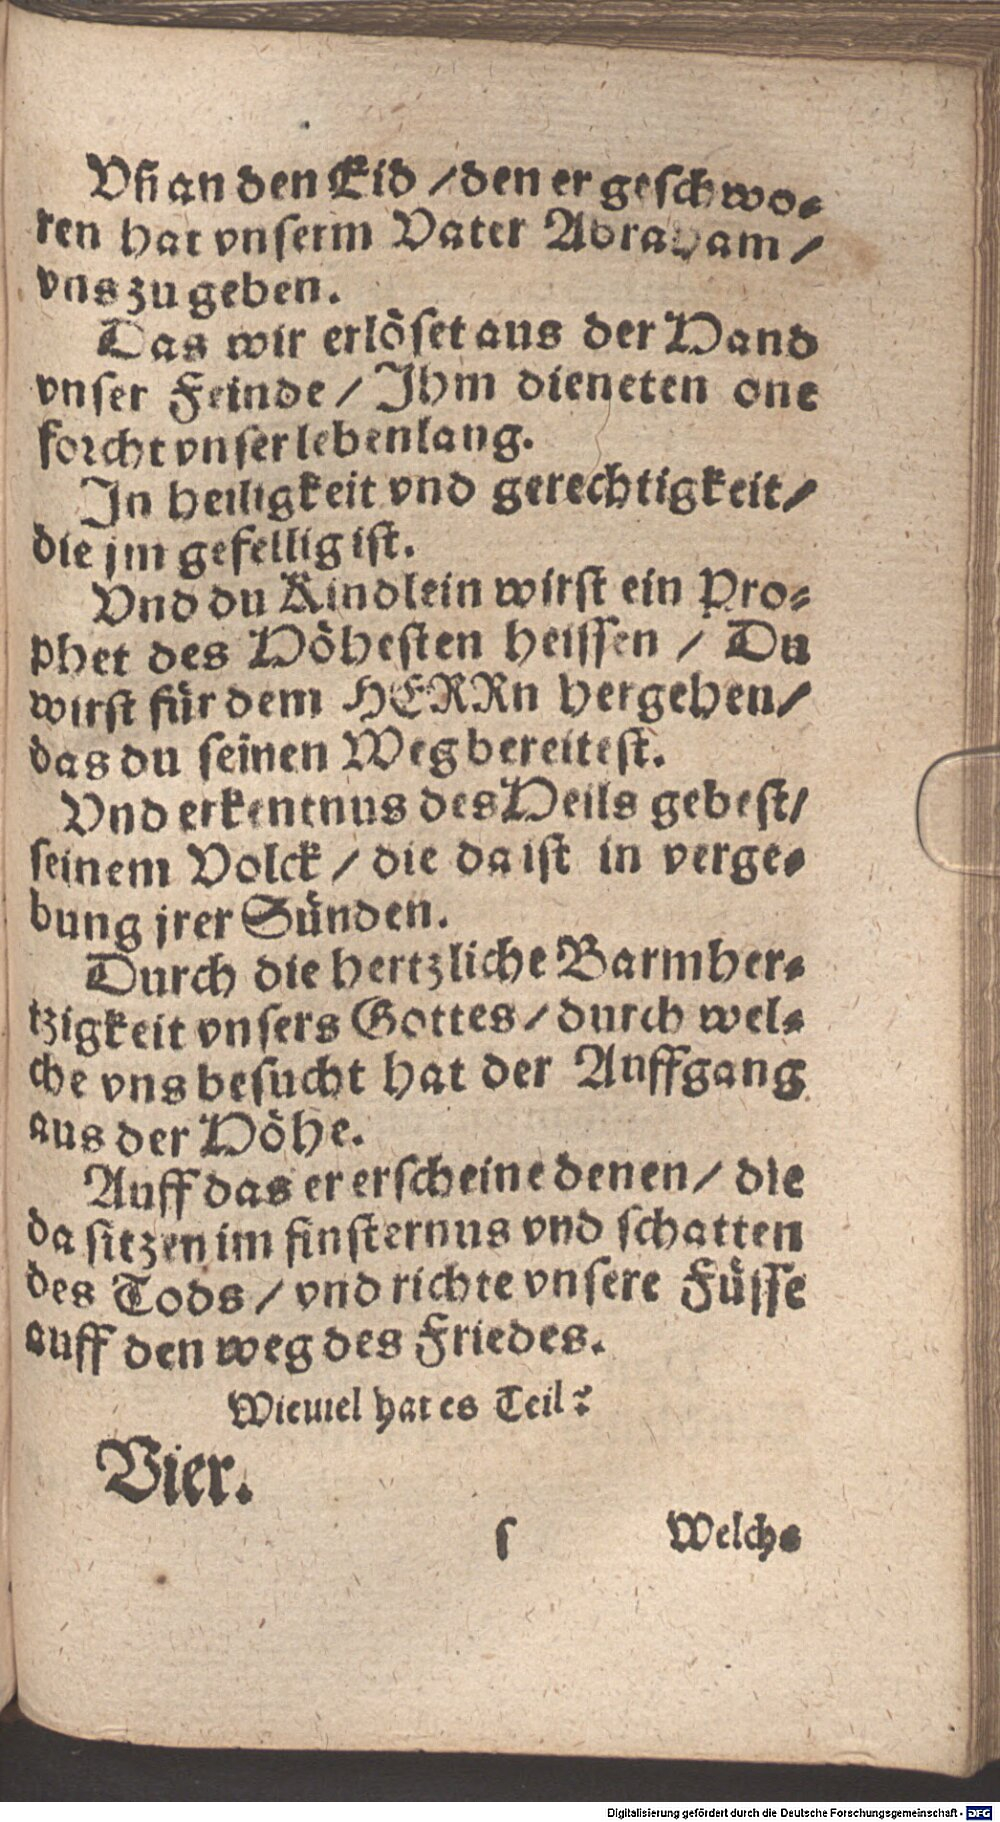 Vñ an den Eid / den er geschwo⸗
ren hat vnserm Vater Abraham /
vns zu geben.
Das wir erlöset aus der Hand
vnser Feinde / Ihm dieneten one
forcht vnser lebenlang.
In heiligkeit vnd gerechtigkeit /
die jm gefellig ist.
Vnd du Kindlein wirst ein Pro⸗
phet des Höhesten heissen / Du
wirst für dem HERRn hergehen /
das du seinen Weg bereitest.
Vnd erkentnus des Heils gebest /
seinem Volck / die da ist in verge⸗
bung jrer Sünden.
Durch die hertzliche Barmher⸗
tzigkeit vnsers Gottes / durch wel⸗
che vns besucht hat der Auffgang
aus der Höhe.
Auff das er erscheine denen / die
da sitzen im finsternus vnd schatten
des Tods / vnd richte vnsere Füsse
auff den weg des Friedes.
Wieuiel hat es Teil?
Vier.
ſ Welchs
Digitalisierung gefördert durch die Deutsche Forschungsgemeinschaft - DFG